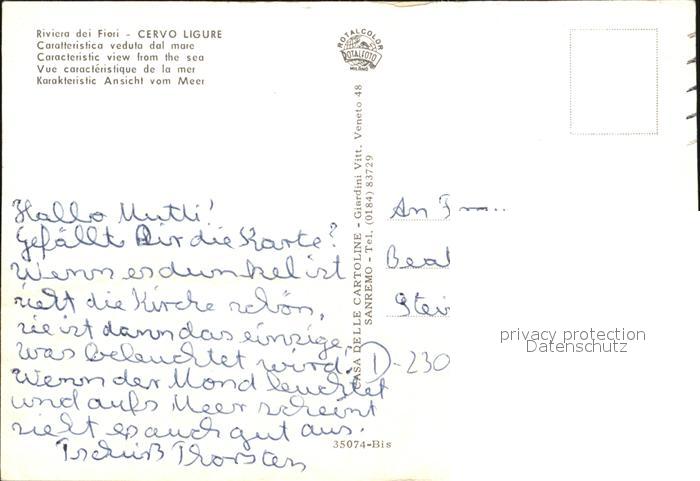 Riviera dei Fiori - CERVO LIGURE
Caratteristica veduta dal mare
Caracteristic view from the sea
Vue caractéristique de la mer
Karakteristic Ansicht vom Meer
ROTALCOLOR
ROTALFOTO
MILANO
CASA DELLE CARTOLINE - Giardini Vitt. Veneto 48
SANREMO - Tel. (0184) 83729
Hallo Mutti!
Gefällt Dir die Karte?
Wenn es dunkel ist
sieht die Kirche schön,
sie ist dann das einzige,
was beleuchtet wird!
Wenn der Mond leuchtet
und aufs Meer scheint
sieht es auch gut aus.
Tschüß Thorsten
An F
Beat
Stei
D-230
privacy protection
Datenschutz
35074-Bis